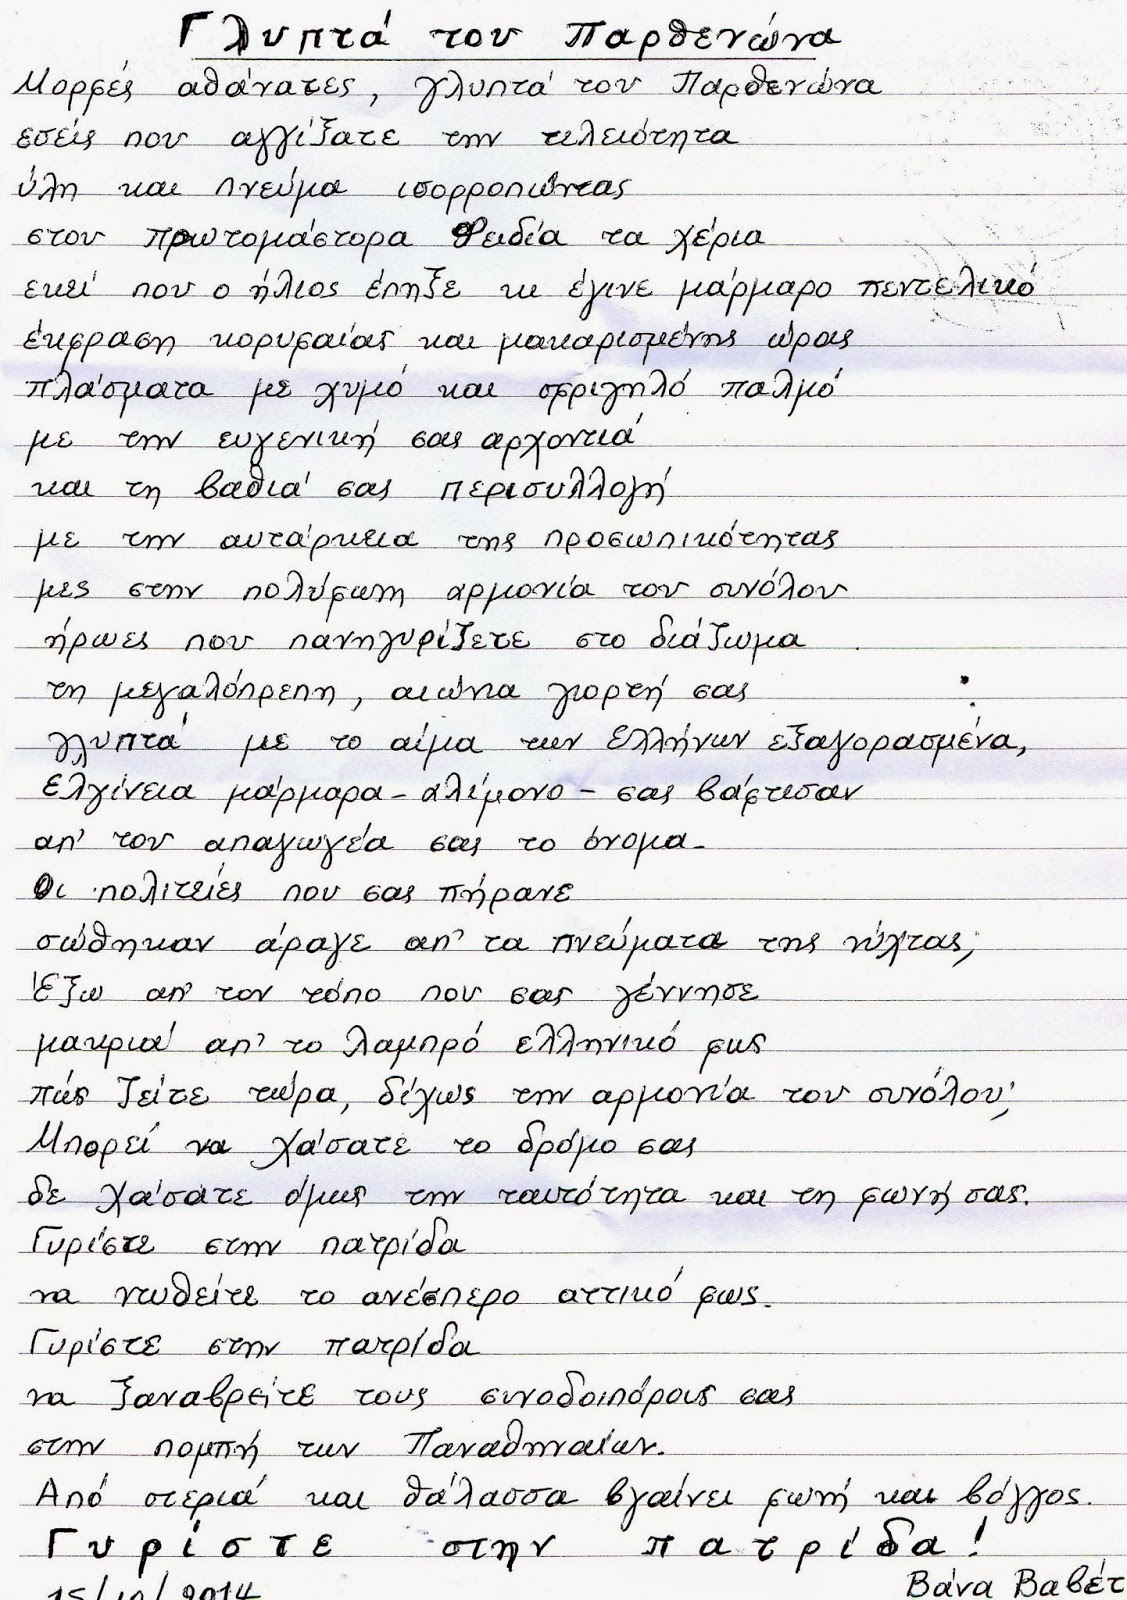 Γλυπτά του Παρθενώνα
Μορφές αθάνατες, γλυπτά του Παρθενώνα
εσείς που αγγίξατε την τελειότητα
ύλη και πνεύμα ισορροπώντας
στου πρωτομάστορα Φειδία τα χέρια
εκεί που ο ήλιος έπηξε κι έγινε μάρμαρο πεντελικό
έκφραση κορυφαίας και μακαρισμένης ώρας
πλάσματα με χυμό και σφριγηλό παλμό
με την ευγενική σας αρχοντιά
και τη βαθιά σας περισυλλογή
με την αυτάρκεια της προσωπικότητας
μες στην πολύφωνη αρμονία του συνόλου
ήρωες που πανηγυρίζετε στο διάζωμα
τη μεγαλόπρεπη, αιώνια γιορτή σας
γλυπτά με το αίμα των Ελλήνων εξαγορασμένα,
Ελγίνεια μάρμαρα - αλίμονο - σας βάφτισαν
απ' του απαγωγέα σας το όνομα.
Οι πολιτείες που σας πήρανε
σώθηκαν άραγε απ' τα πνεύματα της νύχτας;
Έξω απ' τον τόπο που σας γέννησε
μακριά απ' το λαμπρό ελληνικό φως
πώς ζείτε τώρα, δίχως την αρμονία του συνόλου;
Μπορεί να χάσατε το δρόμο σας
δε χάσατε όμως την ταυτότητα και τη φωνή σας.
Γυρίστε στην πατρίδα
να ντυθείτε το ανέσπερο αττικό φως.
Γυρίστε στην πατρίδα
να ξαναβρείτε τους συνοδοιπόρους σας
στην πομπή των Παναθηναίων.
Από στεριά και θάλασσα βγαίνει φωνή και βόγγος.
Γυρίστε στην πατρίδα!
Βάνα Βαβέτ
15/10/2014